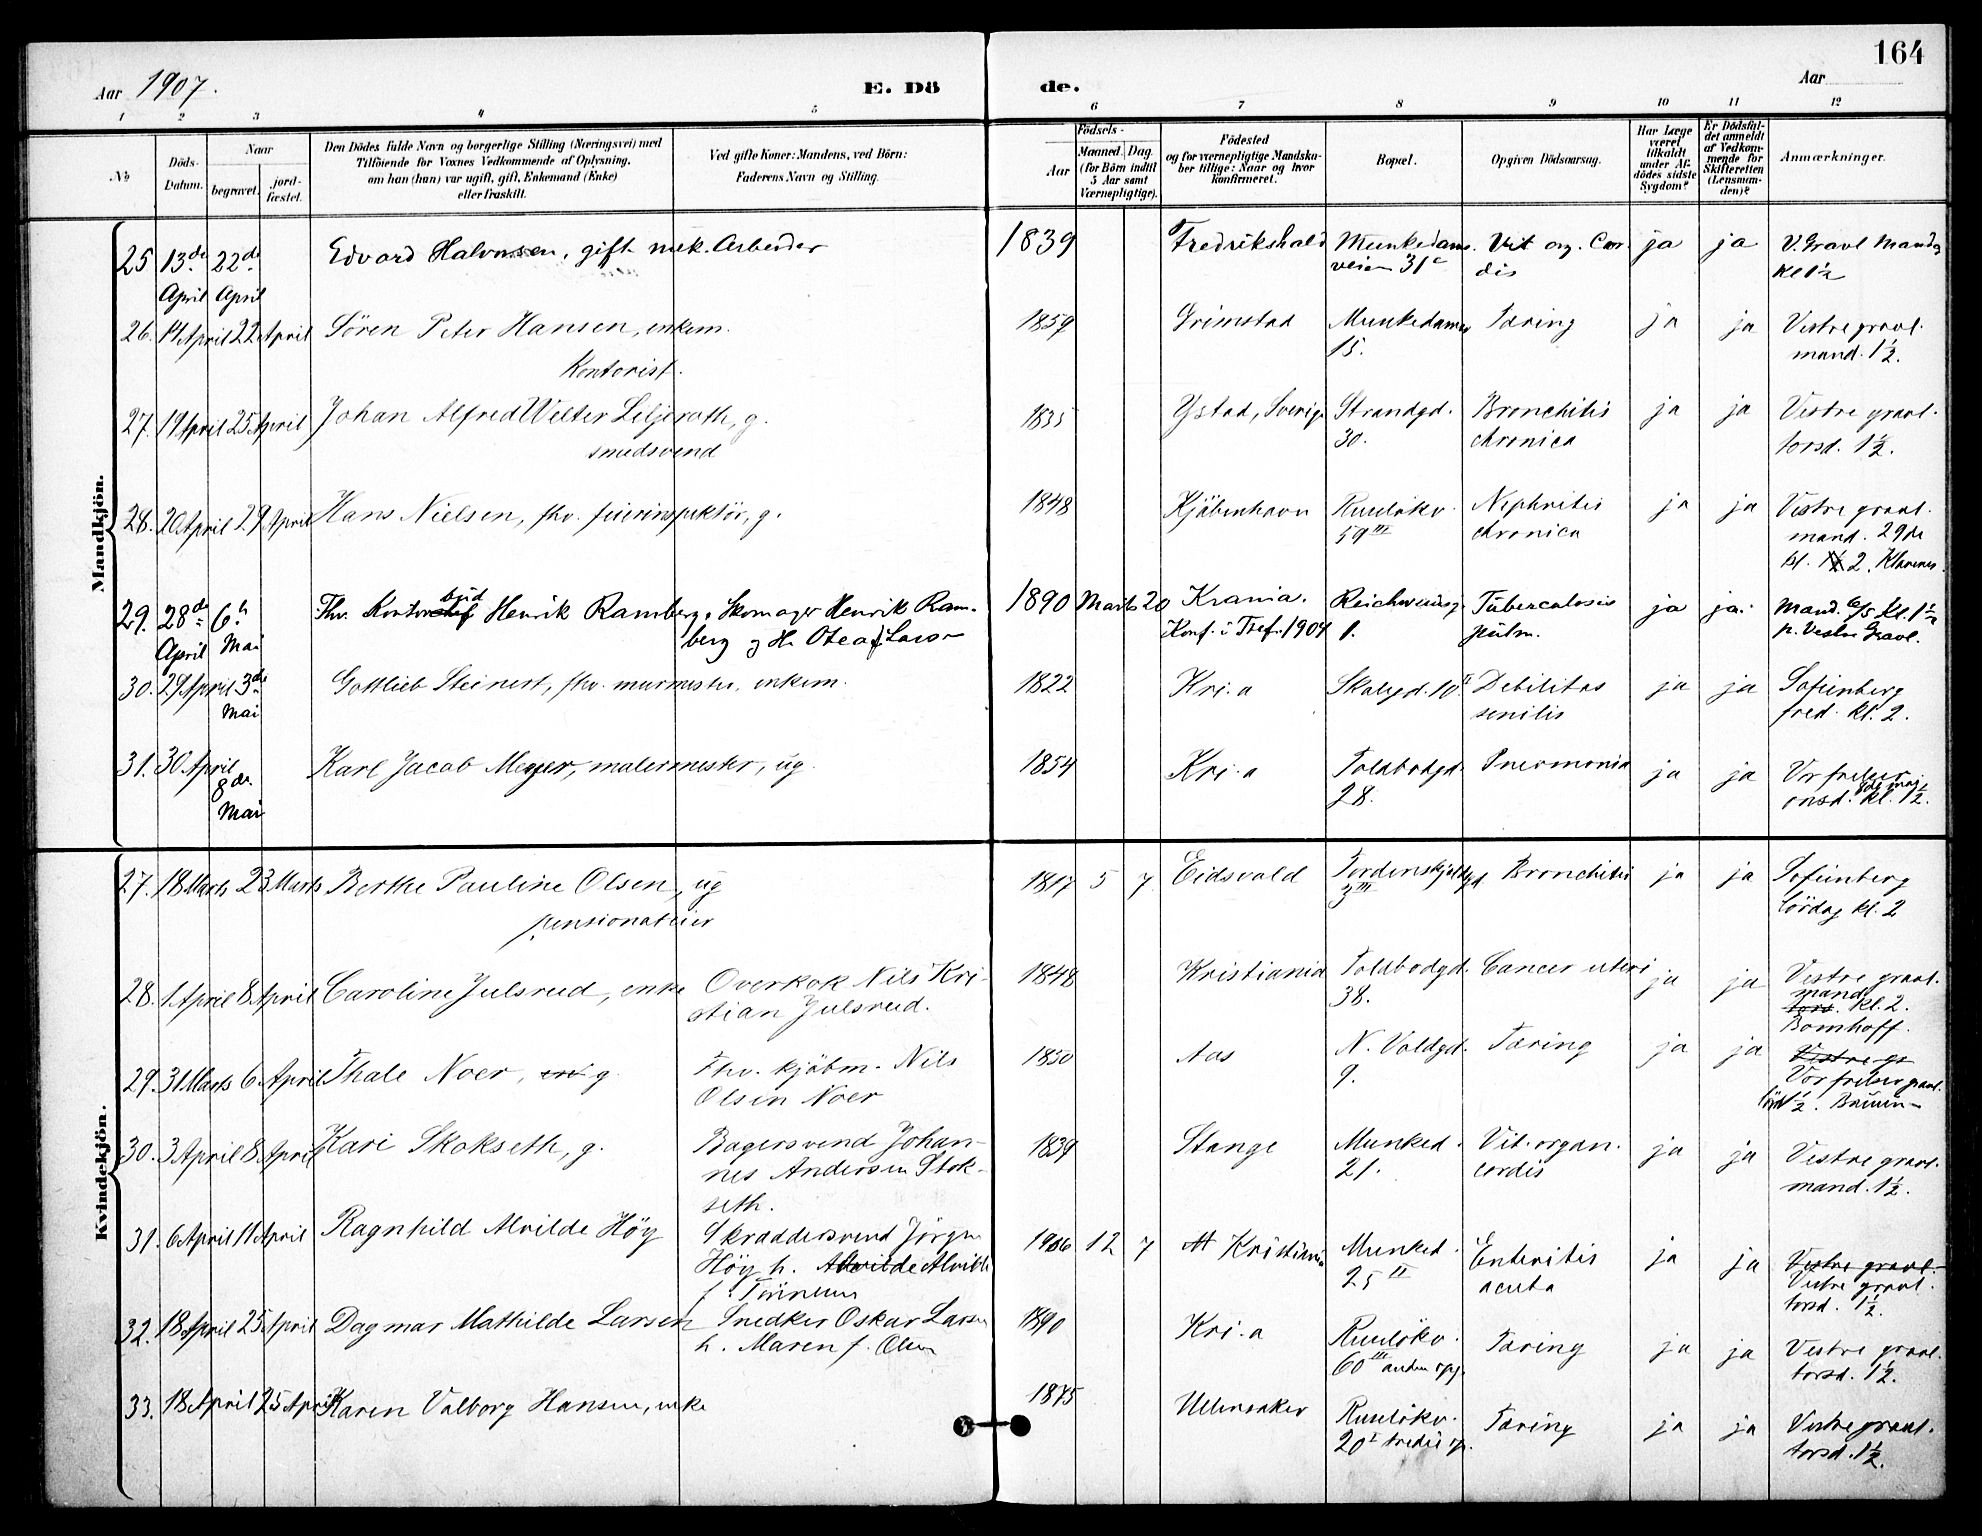 164
Aar 1907.
E. Dö de.
Aar
1 2 3 4 5 6 7 8 9 10 11 12
No
Döds-Datum.
Naar begravet. jord-fæstet.
Den Dödes fulde Navn og borgerlige Stilling (Næringsvei) med
Tilföiende for Voxnes Vedkommende af Oplysning,
om han (hun) var ugift, gift, Enkemand (Enke)
eller fraskilt.
Ved gifte Koner: Mandens, ved Börn:
Faderens Navn og Stilling.
Födsels-
Aar Maaned. Dag.
(for Börn indtil
5 Aar samt
Værnepligtige).
Födested
og for værnepligtige Mandska-
ber tillige: Naar og hvor
konfirmeret.
Bopæl.
Opgiven Dödsaarsag.
Har Læge
været
tilkaldt
under Af-
dödes sidste
Sygdom?
Er Dödsfal-
det anmeldt
af Vedkom-
mende for
Skifteretten
(Lensman-
den)?
Anmærkninger.
Mandkjön.
25 13de April 22de April Edvard Halvorsen, gift mek. Arbeider 1839 Fredrikshald Munkedams-veien 31c Vit. org. Cor-dis ja ja V. Gravl Mandag Kl 1½
26. 14 April 22 April Sören Peter Hansen, enkem. Kontorist. 1859 Grimstad Munkedamsv 15. Tæring ja ja Vestre gravl. mand. 1½.
27. 19 April 25 April Johan Alfred Welter Liljeroth, g. smedsvend 1835 Ystad, Sverige Strandgd. 30. Bronchitis chronica ja ja Vestre gravl. torsd. 1½.
28. 20 April 29 April Hans Nielsen, fhv. fyrinspektör, g. 1848 Kjöbenhavn Ruselökv. 59 III Nephritis chronica ja ja Vestre gravl. mand. 29de kl. 2. Klavenes.
29. 28de April 6te Mai Fhv. Kontorbud Henrik Ramberg, Skomager Henrik Ram-berg og H. Otea f. Larsen 1890 Marts 20 Krania. Konf. i Tref. 1904 Reichweinsg. 1. Tuberculosis pulm. ja ja. Mand. 6/5 kl. 1½ p. Vestre Gravl.
30. 29 April 3de Mai Gottlieb Steinert, fhv. murmester, enkem. 1822 Kri.a Skolegd. 10 II Debilitas senilis ja ja Sofienberg fred. kl. 2.
31. 30 April 8de Mai Karl Jacob Meyer, malermester, ug. 1854 Kri.a Toldbodgd. 28. Pneumonia ja ja Vor frelser 8de mai onsd. kl. 1½.
Kvindekjön.
27. 18 Marts 23 Marts Berthe Pauline Olsen, ug pensionatier 1817 5 7 Eidsvold Tordenskjoldgd 3 III Bronchitis ja ja Sofienberg lördag kl. 2
28. 1 April 8 April Caroline Julsrud, enke Overkok Nils Kri-stian Julsrud. 1848 Kristiania Toldbodgd. 38. Cancer uteri ja ja Vestre gravl. mand. tors. kl. 2. Bomhoff.
29. 31 Marts 6 April Thale Noer, en g. Fhv. kjöbm. Nils Olsen Noer 1850 Aas N. Voldgd. 9. Tæring ja ja Vestre gr Vor frelser gravl. lörd 1½. Bruun
30. 3 April 8 April Kari Skokseth, g. Bagersvend Johan-nes Andersen Stok-seth. 1839 Stange Munked. 21. Vit. organ. cordis ja ja Vestre gravl. mand. 1½.
31. 6 April 11 April Ragnhild Alvilde Höy Skræddersvend Jörgen Höy h. Alvilde Alvilde f. Tönnesen 1906 12 7 Kristiania Munked. 25 II Enteritis acuta ja ja Vestre gravl. Vestre gravl. torsd. 1½.
32. 18 April 25 April Dagmar Mathilde Larsen Snedker Oskar Larsen h. Maren f. Olsen 1890 Kri.a Ruselökv. 60 III anden opg. Tæring ja ja Vestre gravl. torsd. 1½.
33. 18 April 25 April Karen Valborg Hansen, enke 1875 Ullensaker Ruselökv. 20 I tredie op. Tæring ja ja Vestre gravl. torsd. 1½.